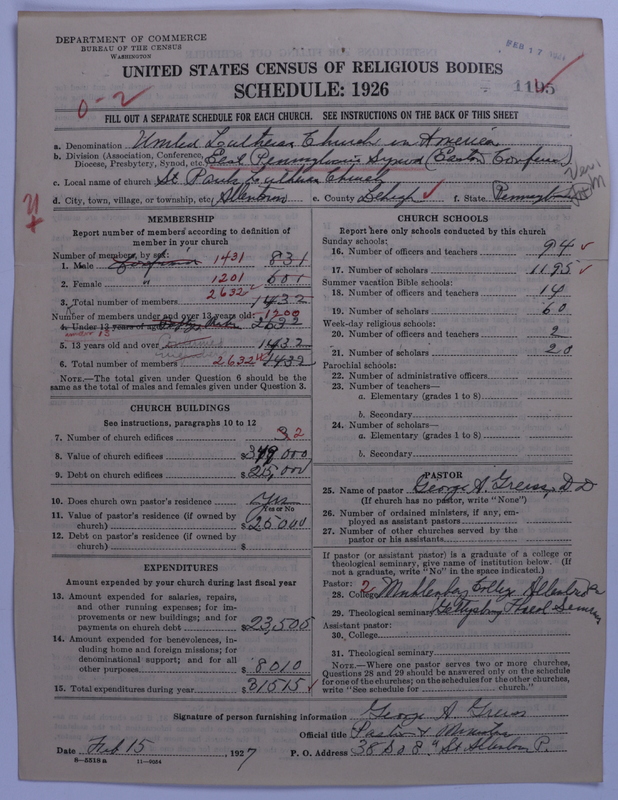 DEPARTMENT OF COMMERCE
BUREAU OF THE CENSUS
WASHINGTON
FEB 17
UNITED STATES CENSUS OF RELIGIOUS BODIES
SCHEDULE: 1926
1195
0-2
FILL OUT A SEPARATE SCHEDULE FOR EACH CHURCH. SEE INSTRUCTIONS ON THE BACK OF THIS SHEET
a. Denomination United Lutheran Church in America
b. Division (Association, Conference, Diocese, Presbytery, Synod, etc. East Pennsylvania Synod (Easton Conference)
c. Local name of church St Pauls Lutheran Church
d. City, town, village, or township, etc. Allentown e. County Lehigh f. State Pennsylvania
MEMBERSHIP
Report number of members according to definition of
member in your church
Number of members, by sex:
1. Male 1431 831
2. Female 1201 601
2632
3. Total number of members 1432
Number of members under and over 13 years old: 1200
4. Under 13 years of age 2632
under 13
5. 13 years old and over 1432
6. Total number of members 2632 1432
NOTE.—The total given under Question 6 should be the
same as the total of males and females given under Question 3.
CHURCH BUILDINGS
See instructions, paragraphs 10 to 12
7. Number of church edifices 2
8. Value of church edifices $ 349,000
9. Debt on church edifices $ 215,000
10. Does church own pastor's residence Yes
Yes or No
11. Value of pastor's residence (if owned by
church) $ 20000
12. Debt on pastor's residence (if owned by
church) $
EXPENDITURES
Amount expended by your church during last fiscal year
13. Amount expended for salaries, repairs,
and other running expenses; for im-
provements or new buildings; and for
payments on church debt $ 23,505
14. Amount expended for benevolences, in-
cluding home and foreign missions; for
denominational support; and for all
other purposes $ 8010
15. Total expenditures during year $ 31515
CHURCH SCHOOLS
Report here only schools conducted by this church
Sunday schools:
16. Number of officers and teachers 94
17. Number of scholars 1195
Summer vacation Bible schools:
18. Number of officers and teachers 14
19. Number of scholars 60
Week-day religious schools:
20. Number of officers and teachers 2
21. Number of scholars 20
Parochial schools:
22. Number of administrative officers
23. Number of teachers—
a. Elementary (grades 1 to 8)
b. Secondary
24. Number of scholars—
a. Elementary (grades 1 to 8)
b. Secondary
PASTOR
25. Name of pastor George A. Greiss, D D
(If church has no pastor, write "None")
26. Number of ordained ministers, if any, em-
ployed as assistant pastors
27. Number of other churches served by the
pastor or his assistants
If pastor (or assistant pastor) is a graduate of a college or
theological seminary, give name of institution below. (If
not a graduate, write "No" in the space indicated.)
Pastor: 2
28. College Muhlenberg College Allentown Pa
29. Theological seminary Gettysburg Theol Seminary
Assistant pastor:
30. College
31. Theological seminary
NOTE.—Where one pastor serves two or more churches,
Questions 28 and 29 should be answered only on the schedule
for one of the churches; on the schedules for the other churches,
write "See schedule for church."
Signature of person furnishing information George A Greiss
Official title Pastor & Minister
Date Feb 15 1927 P. O. Address 38 So 8" St Allentown P.
8-5519 a 11-8034